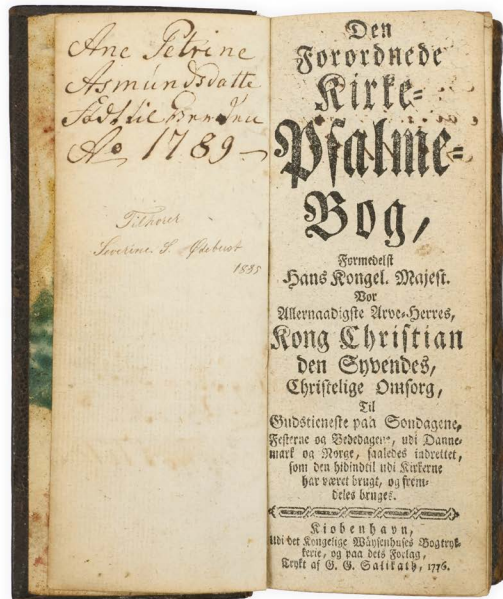 Ane Petrine
Asmundsdatte
Født til Verden
Ao 1789
Tilhører
Severine. S.
1885
Den
Forordnede
Kirke-
Psalme-
Bog,
Formedelst
Hans Kongel. Majest.
Vor
Allernaadigste Arve-Herres,
Kong Christian
den Syvendes,
Christelige Omsorg,
Til
Gudstieneste paa Søndagene,
Festerne og Bededagene, udi Danne-
mark og Norge, saaledes indrettet,
som den hidindtil udi Kirkerne
har været brugt, og frem-
deles bruges.
Kiøbenhavn,
udi det Kongelige Wäysenhuses Bogtryk-
kerie, og paa dets Forlag,
Trykt af G. G. Salikath, 1776.